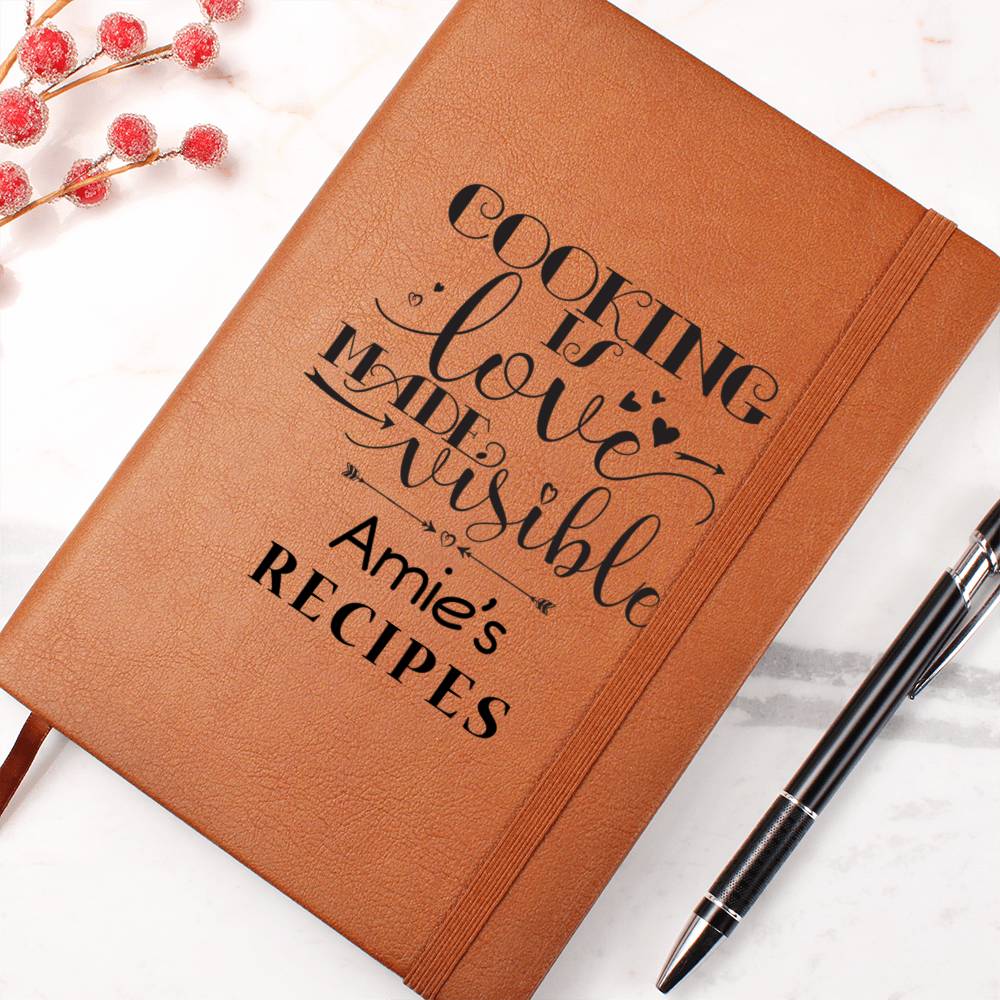 COOKING
IS
love
MADE
visible
Amie's
RECIPES